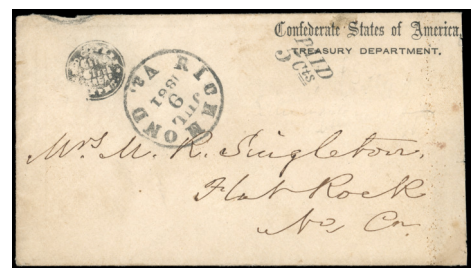 Confederate States of America,
TREASURY DEPARTMENT.
PAID
3 Cts
RICHMOND VA
JUL
9
1861
Mrs M. K. Singleton.
Flat Rock
No Ca